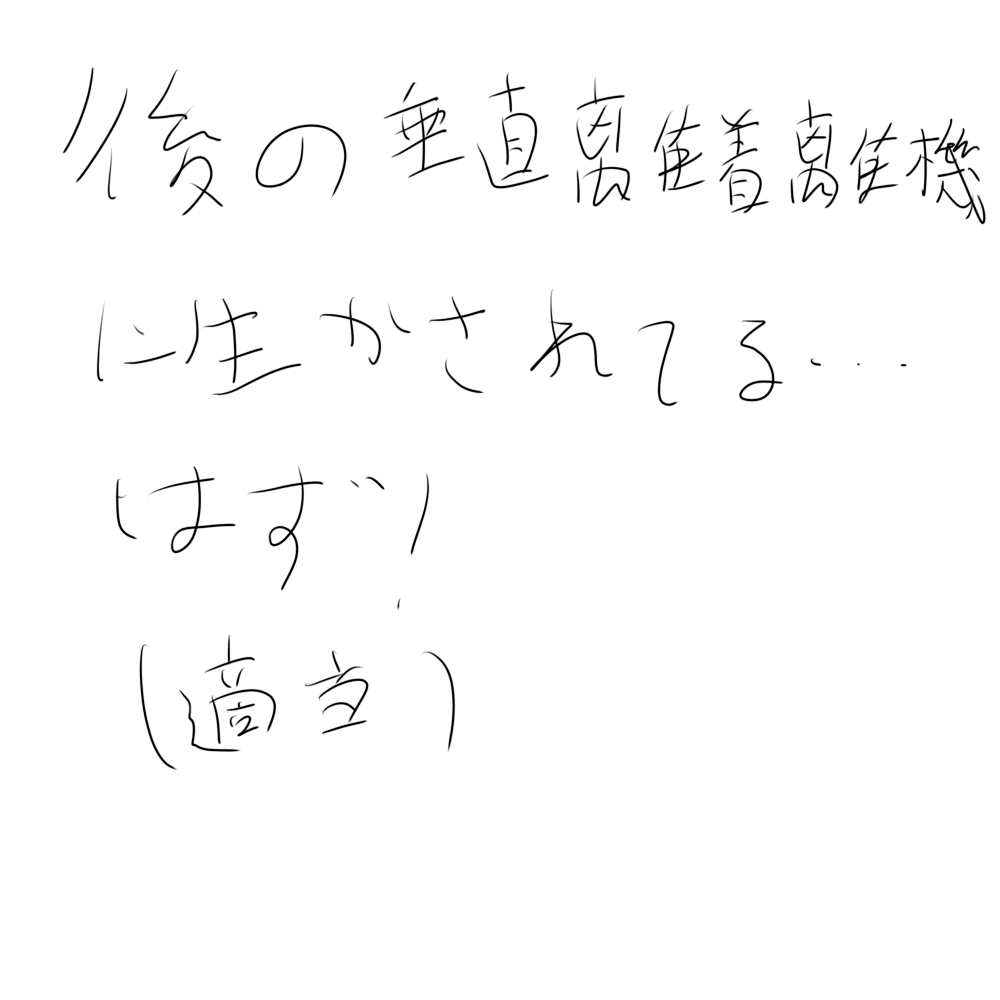 後の垂直離着離機
に生かされてる…
はず!
(適当)